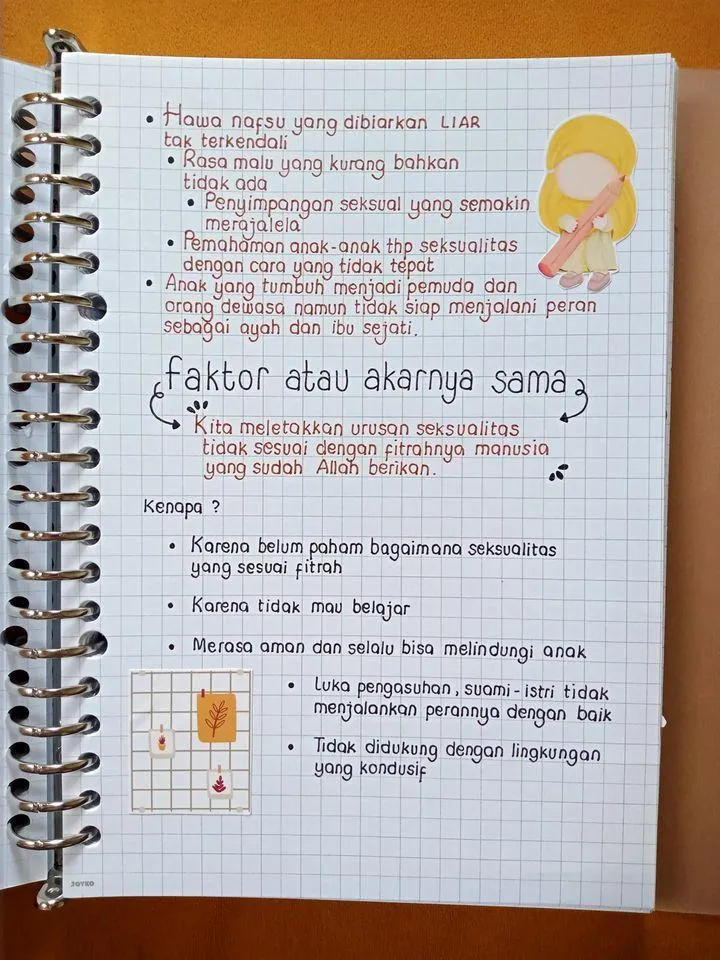 • Hawa nafsu yang dibiarkan LIAR
tak terkendali
• Rasa malu yang kurang bahkan
tidak ada
• Penyimpangan seksual yang semakin
merajalela
• Pemahaman anak-anak thp seksualitas
dengan cara yang tidak tepat
• Anak yang tumbuh menjadi pemuda dan
orang dewasa namun tidak siap menjalani peran
sebagai ayah dan ibu sejati.
faktor atau akarnya sama
Kita meletakkan urusan seksualitas
tidak sesuai dengan fitrahnya manusia
yang sudah Allah berikan.
Kenapa ?
• Karena belum paham bagaimana seksualitas
yang sesuai fitrah
• Karena tidak mau belajar
• Merasa aman dan selalu bisa melindungi anak
• Luka pengasuhan, suami-istri tidak
menjalankan perannya dengan baik
• Tidak didukung dengan lingkungan
yang kondusif
JOYKO